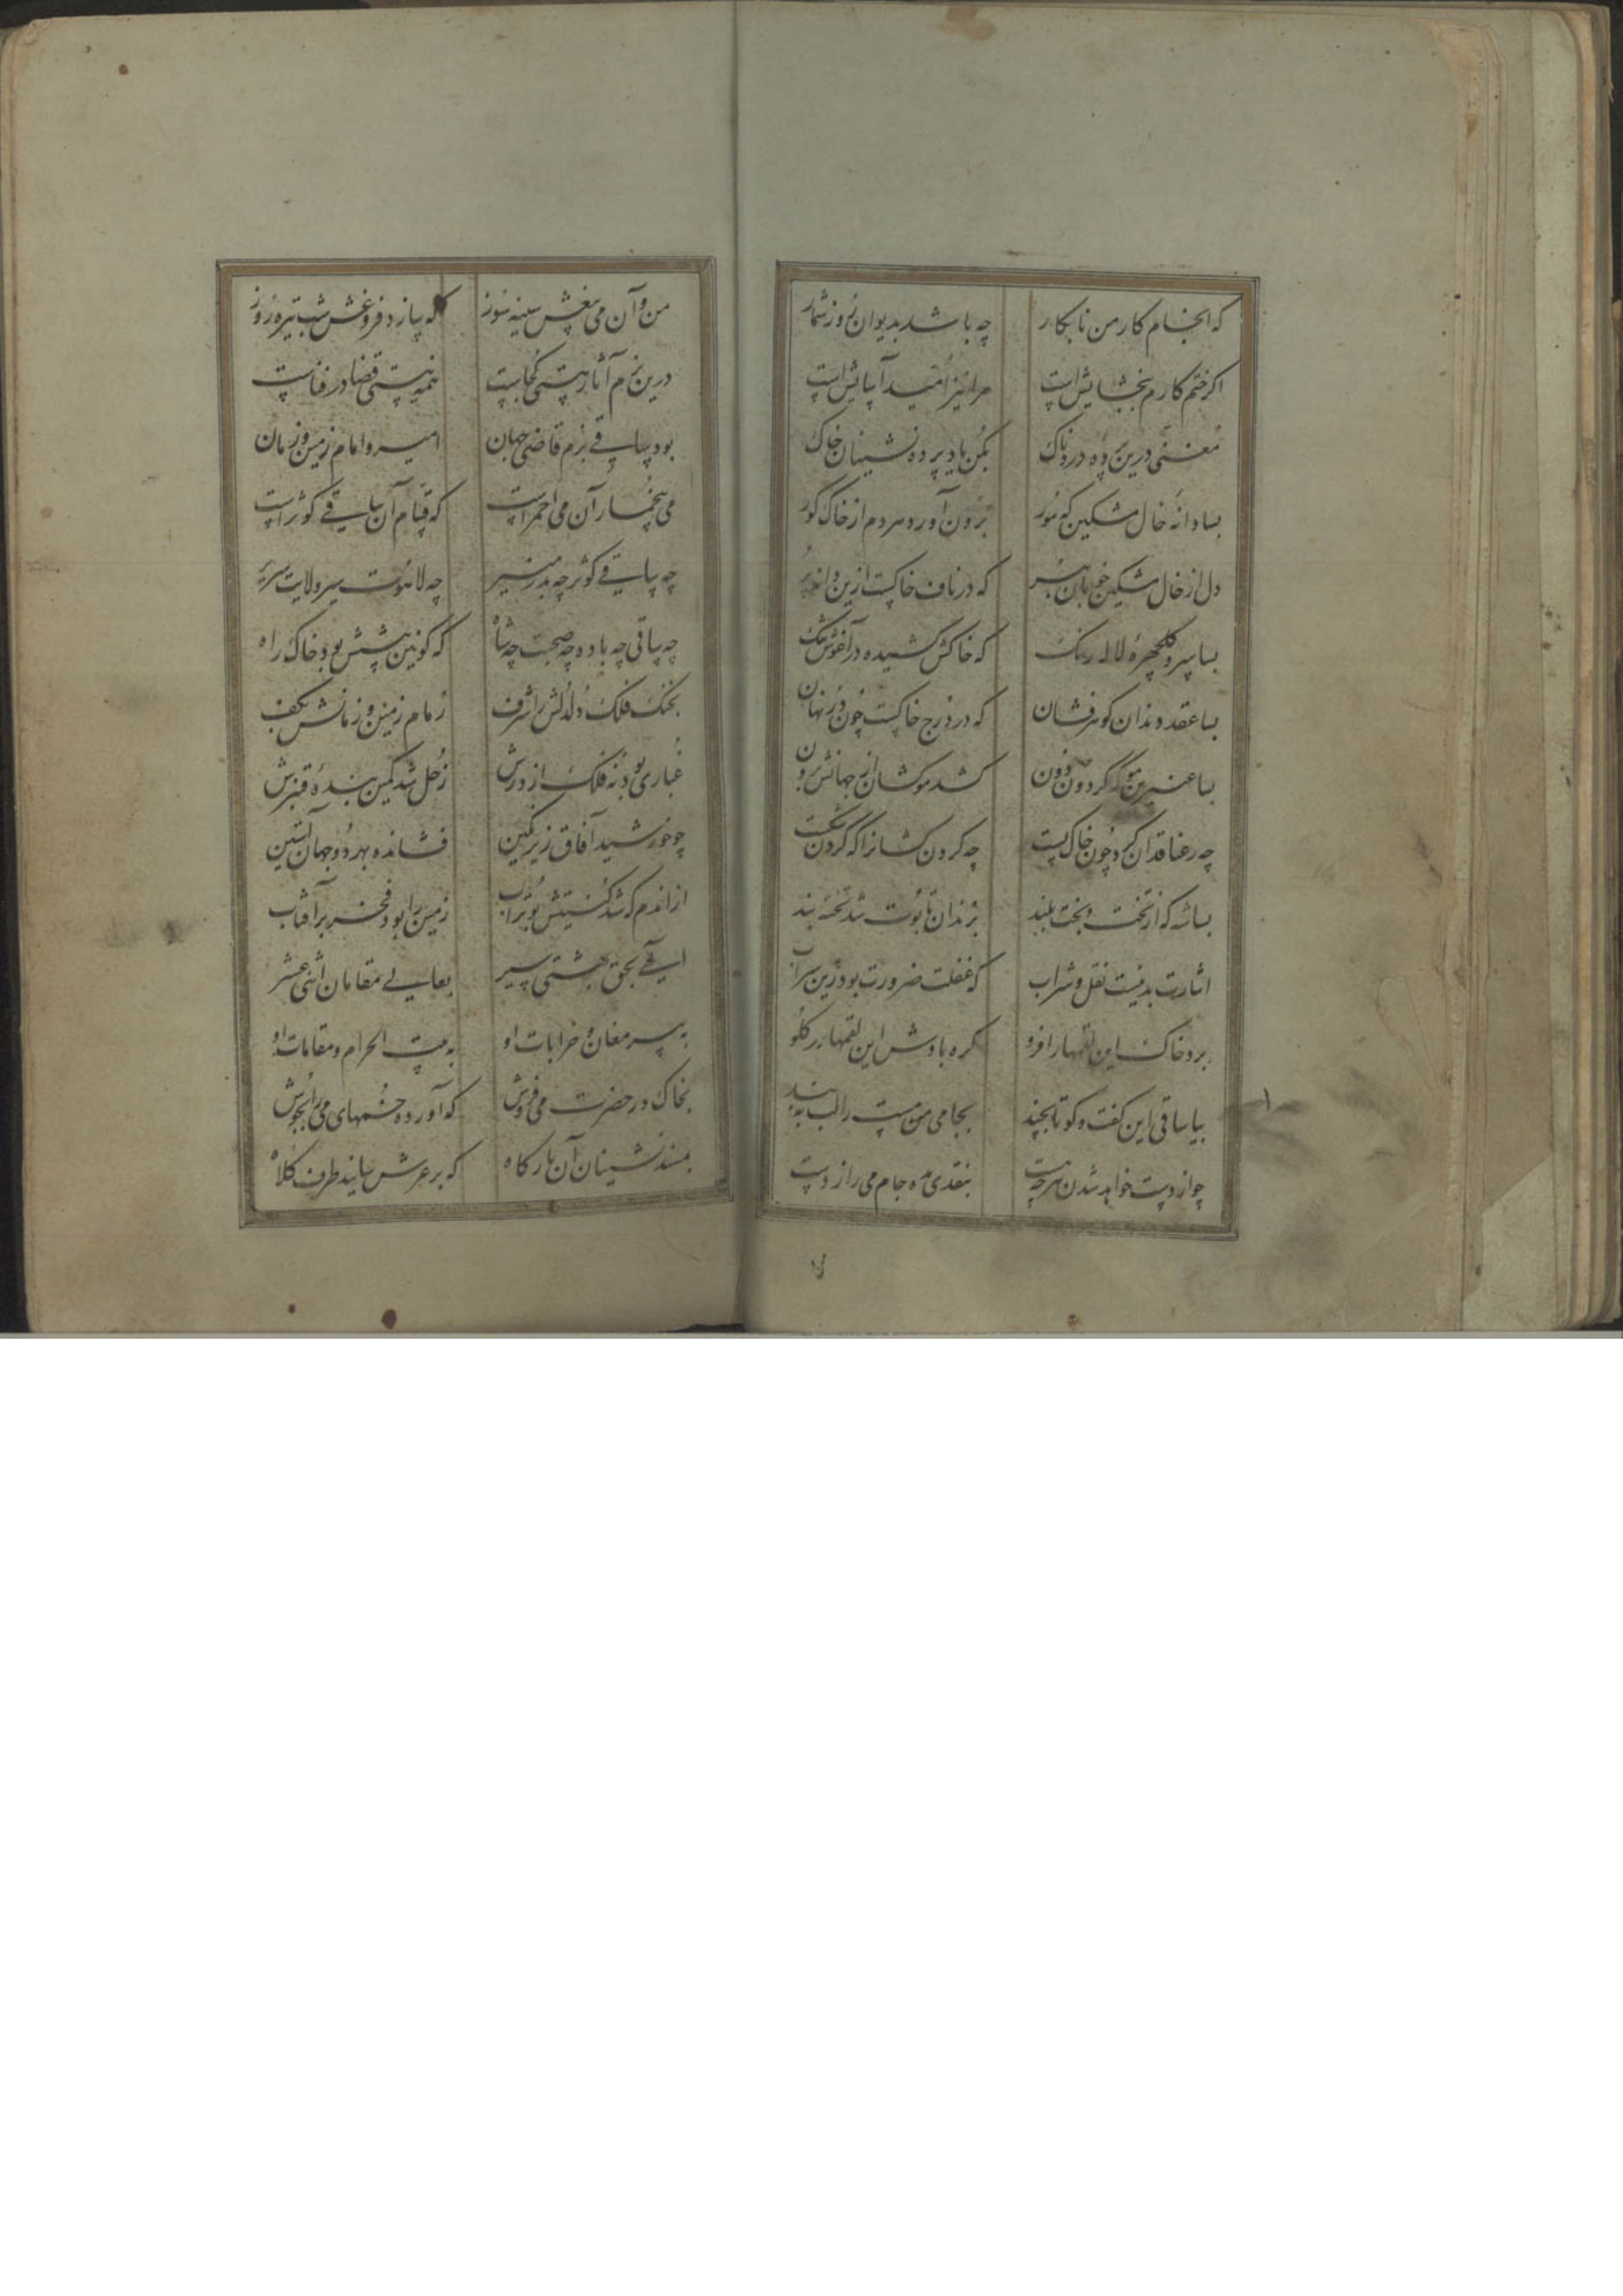 که انجام کار من نابکار چه باشد بدیوان روز شمار
اگر ختم کارم ببخشایش است مرا نیز امید آسایش است
مغنی درین پرده دردناک بکن یاد پرده نشینان خاک
بسا دانه خال مشکین که مور برون آورد مردم از خاک گور
دل از خال مشکین خوبان ببر که در ناف خاکست ازین دانه پر
بسا سرو گلچهره لاله رنگ که خاکش کشیده در آغوش تنگ
بسا عقد دندان گوهر فشان که در درج خاکست چون در نهان
بسا عنبرین مو که گردون دون کشد موکشان از جهانش برون
چه رعنا قدان کرد چون خاک پست چه گردن کشانرا که گردن شکست
بسا شه که از تخت و بخت بلند بزندان تابوت شد تخته بند
اشارت بدنیست نقل و شراب که غفلت ضرورت بود زین سراب
برد خاک این لقمها را فرو گره باد و ش این لقمها در گلو
بیا ساقی این گفت و گو تا بچند بجامی من مست را لب ببند
چو از دست خواهد شدن هرچه هست بنقدی مده جام می را ز دست
من و آن می بیغش سینه سوز که سازد فروغش شب تیره روز
درین بزم آثار هستی کجاست همه نیستی قضا در فناست
بود ساقی بزم قاضی جهان امیر و امام زمین و زمان
می بیخمار آن می احمر است که قسام آن ساقی کوثر است
چه ساقی کوثر چه بدر منیر چه لاهوت سیر ولایت سریر
چه ساقی چه باده چه صحبت چه شاه که کونین پیشش بود خاک راه
بخنگ فلک دلدلش را شرف زمام زمین و زمانش بکف
غباری بود نه فلک از درش زحل شد کمین بنده قنبرش
چو خورشید آفاق زیر نگین فشانده بهر دو جهان آستین
از آندم که شد کنیتش بوتراب زمین را بود فخر بر آفتاب
الهی بحق بهشتی سیر بعالی مقامان اثنی عشر
به پیر مغان و خرابات او به بیت الحرام و مقامات او
بخاک در حضرت می فروش که آورده خمهای می را بجوش
بمسند نشینان آن بارگاه که بر عرش سایند طرف کلاه